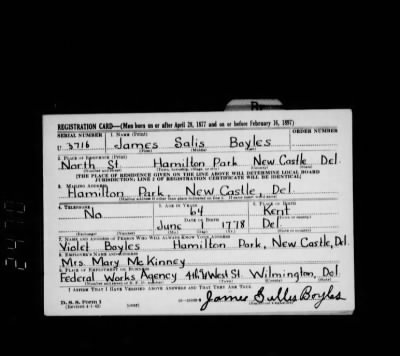 REGISTRATION CARD—(Men born on or after April 28, 1877 and on or before February 16, 1897)
SERIAL NUMBER 1. NAME (Print) ORDER NUMBER
U 3716 James Salis Boyles
(First) (Middle) (Last)
2. PLACE OF RESIDENCE (Print)
North St. Hamilton Park New Castle Del.
[THE PLACE OF RESIDENCE GIVEN ON THE LINE ABOVE WILL DETERMINE LOCAL BOARD
JURISDICTION; LINE 2 OF REGISTRATION CERTIFICATE WILL BE IDENTICAL]
3. MAILING ADDRESS
Hamilton Park, New Castle, Del.
4. TELEPHONE 5. AGE IN YEARS 6. PLACE OF BIRTH
No 64 Kent
DATE OF BIRTH
June 17 78 Del.
(Exchange) (Number) (Mo.) (Day) (Yr.)
7. NAME AND ADDRESS OF PERSON WHO WILL ALWAYS KNOW YOUR ADDRESS
Violet Boyles Hamilton Park, New Castle, Del.
8. EMPLOYER'S NAME AND ADDRESS
Mrs. Mary McKinney
9. PLACE OF EMPLOYMENT OR BUSINESS
Federal Works Agency 4th & West St. Wilmington, Del
I AFFIRM THAT I HAVE VERIFIED ABOVE ANSWERS AND THAT THEY ARE TRUE.
D. S. S. Form 1
(Revised 4-1-42)
James Sallis Boyles
2470